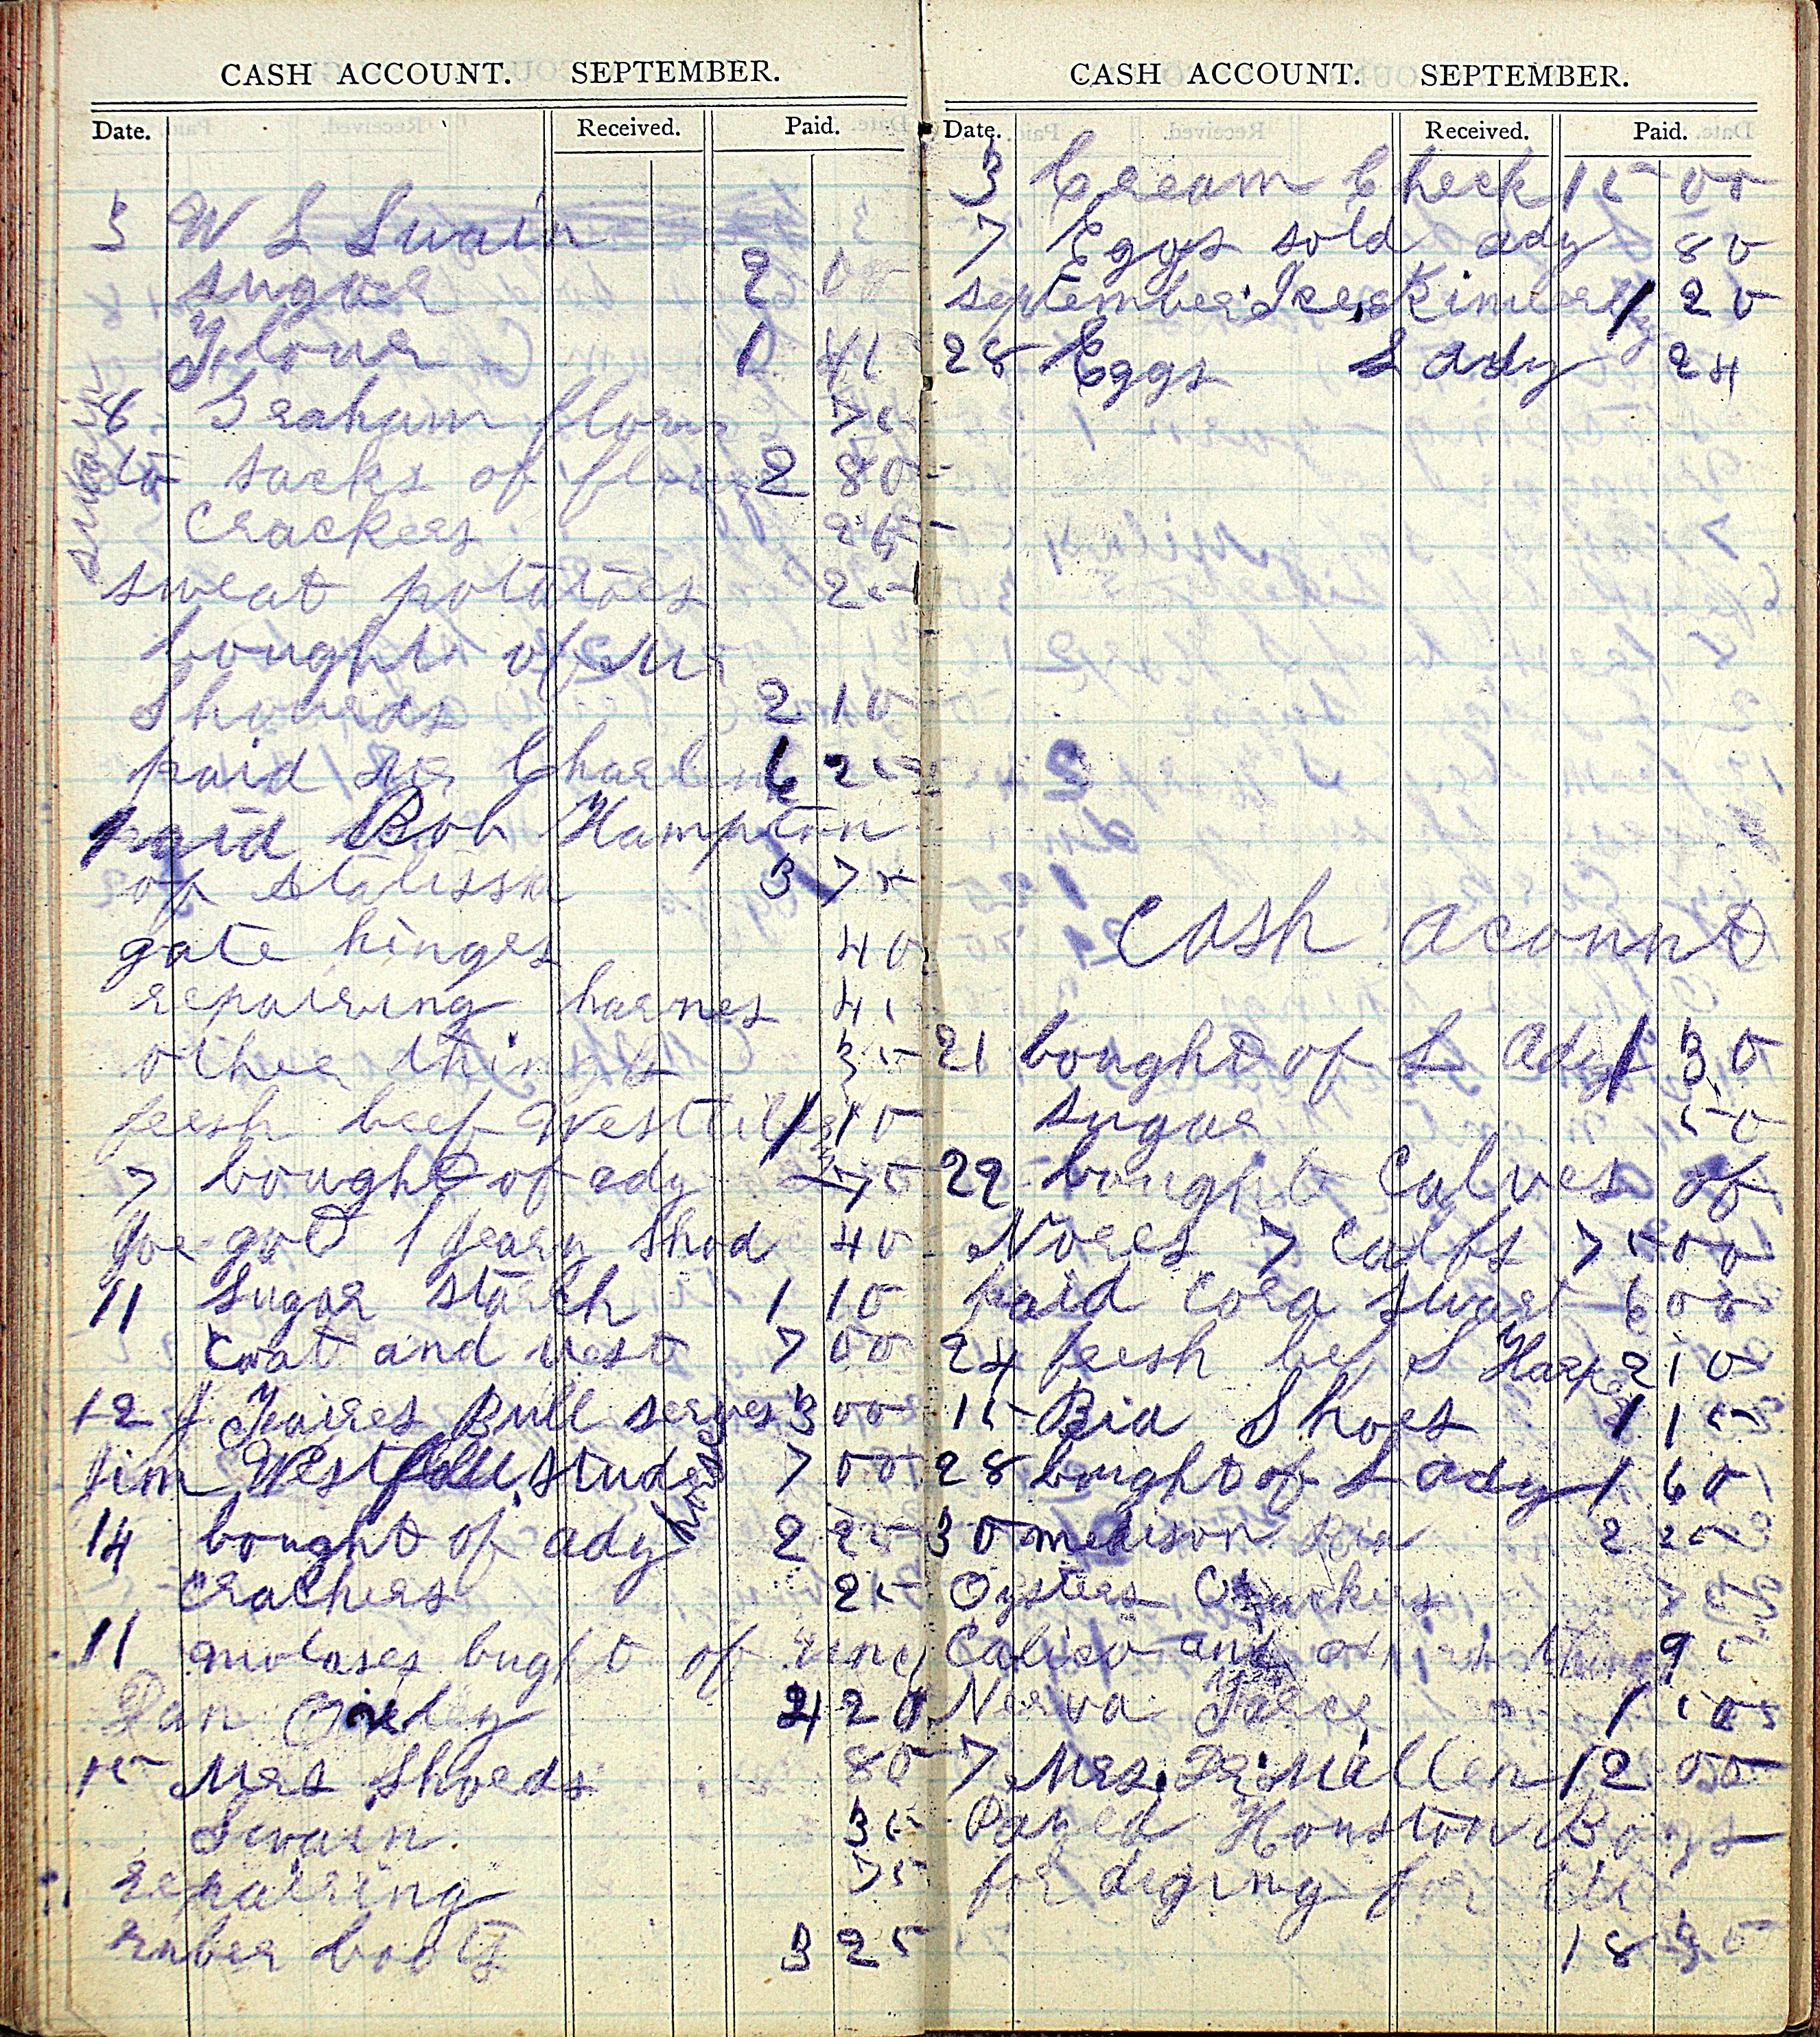 CASH ACCOUNT. SEPTEMBER.
Date. Received. Paid.
3 W L Swain
sugar 2 00
Flour 1 45
swain
6 Graham flour 75
to sacks of flour 2 80
Crackers 25
sweat potatoes 25
bought of Mr
Shoueds 2 10
paid Charl 6 25
paid Bob Hampton
of 3 75
gate hinges 40
repairing harnes 45
other things 35
fresh beef 1 10
7 bought of ady 75
Joe got 1 Jeary Shod 40
11 Sugar starch 1 10
Coat and vest 7 00
12 J Faires Bull serves 3 00
Jim Westfall stude horse 7 00
14 bought of ady 2 25
Crackers 25
11 molases bught of
Dan 4 20
15 Mrs Shoeds 80
Swain 35
repairing 75
ruber boots 3 25
CASH ACCOUNT. SEPTEMBER.
Date. Received. Paid.
3 Cream Check 15 00
7 Eggs sold ady 80
september 1 20
28 Eggs L Ady 24
Cash acount
21 bought of L Ady 1 30
sugar 50
22 bought Calves of
7 Calfs 75 00
paid Cora Swart 6 00
24 fresh bef S Harper 2 10
15 Bia Shoes 1 15
28 bought of L Ady 1 60
30 medison 2 25
Oysters Crackers 75
Calico and 95
Nerva 1 50
7 Mrs. Dr. Mallen 12 00
Payed Houston Boys
for diging for
18